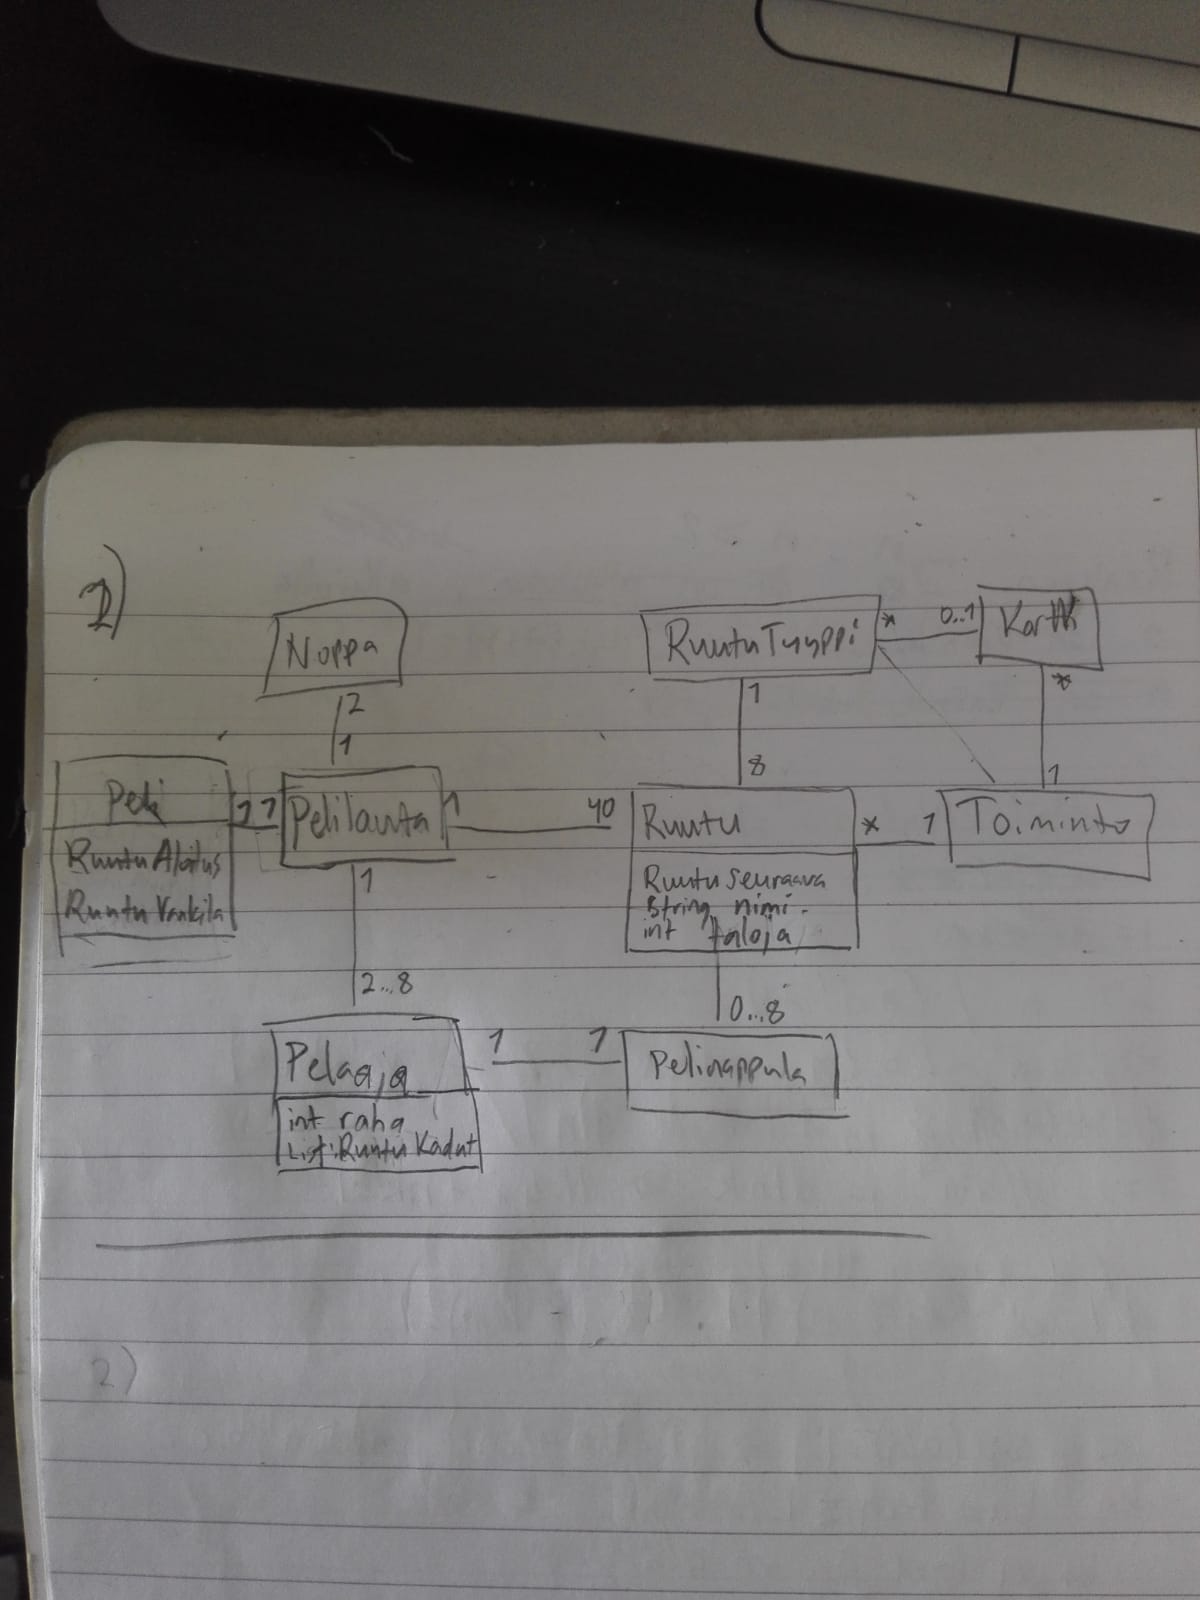 1)
Noppa
RuutuTyyppi
*
0..1
Kortti
2
1
1
8
*
1
Peli
Ruutu Aloitus
Ruutu Vankila
1 1
Pelilauta
1
40
Ruutu
Ruutu seuraava
String nimi
int taloja
*
1
Toiminto
1
2...8
0...8
Pelaaja
int raha
List:Ruutu Kadut
1
1
Pelinappula
2)